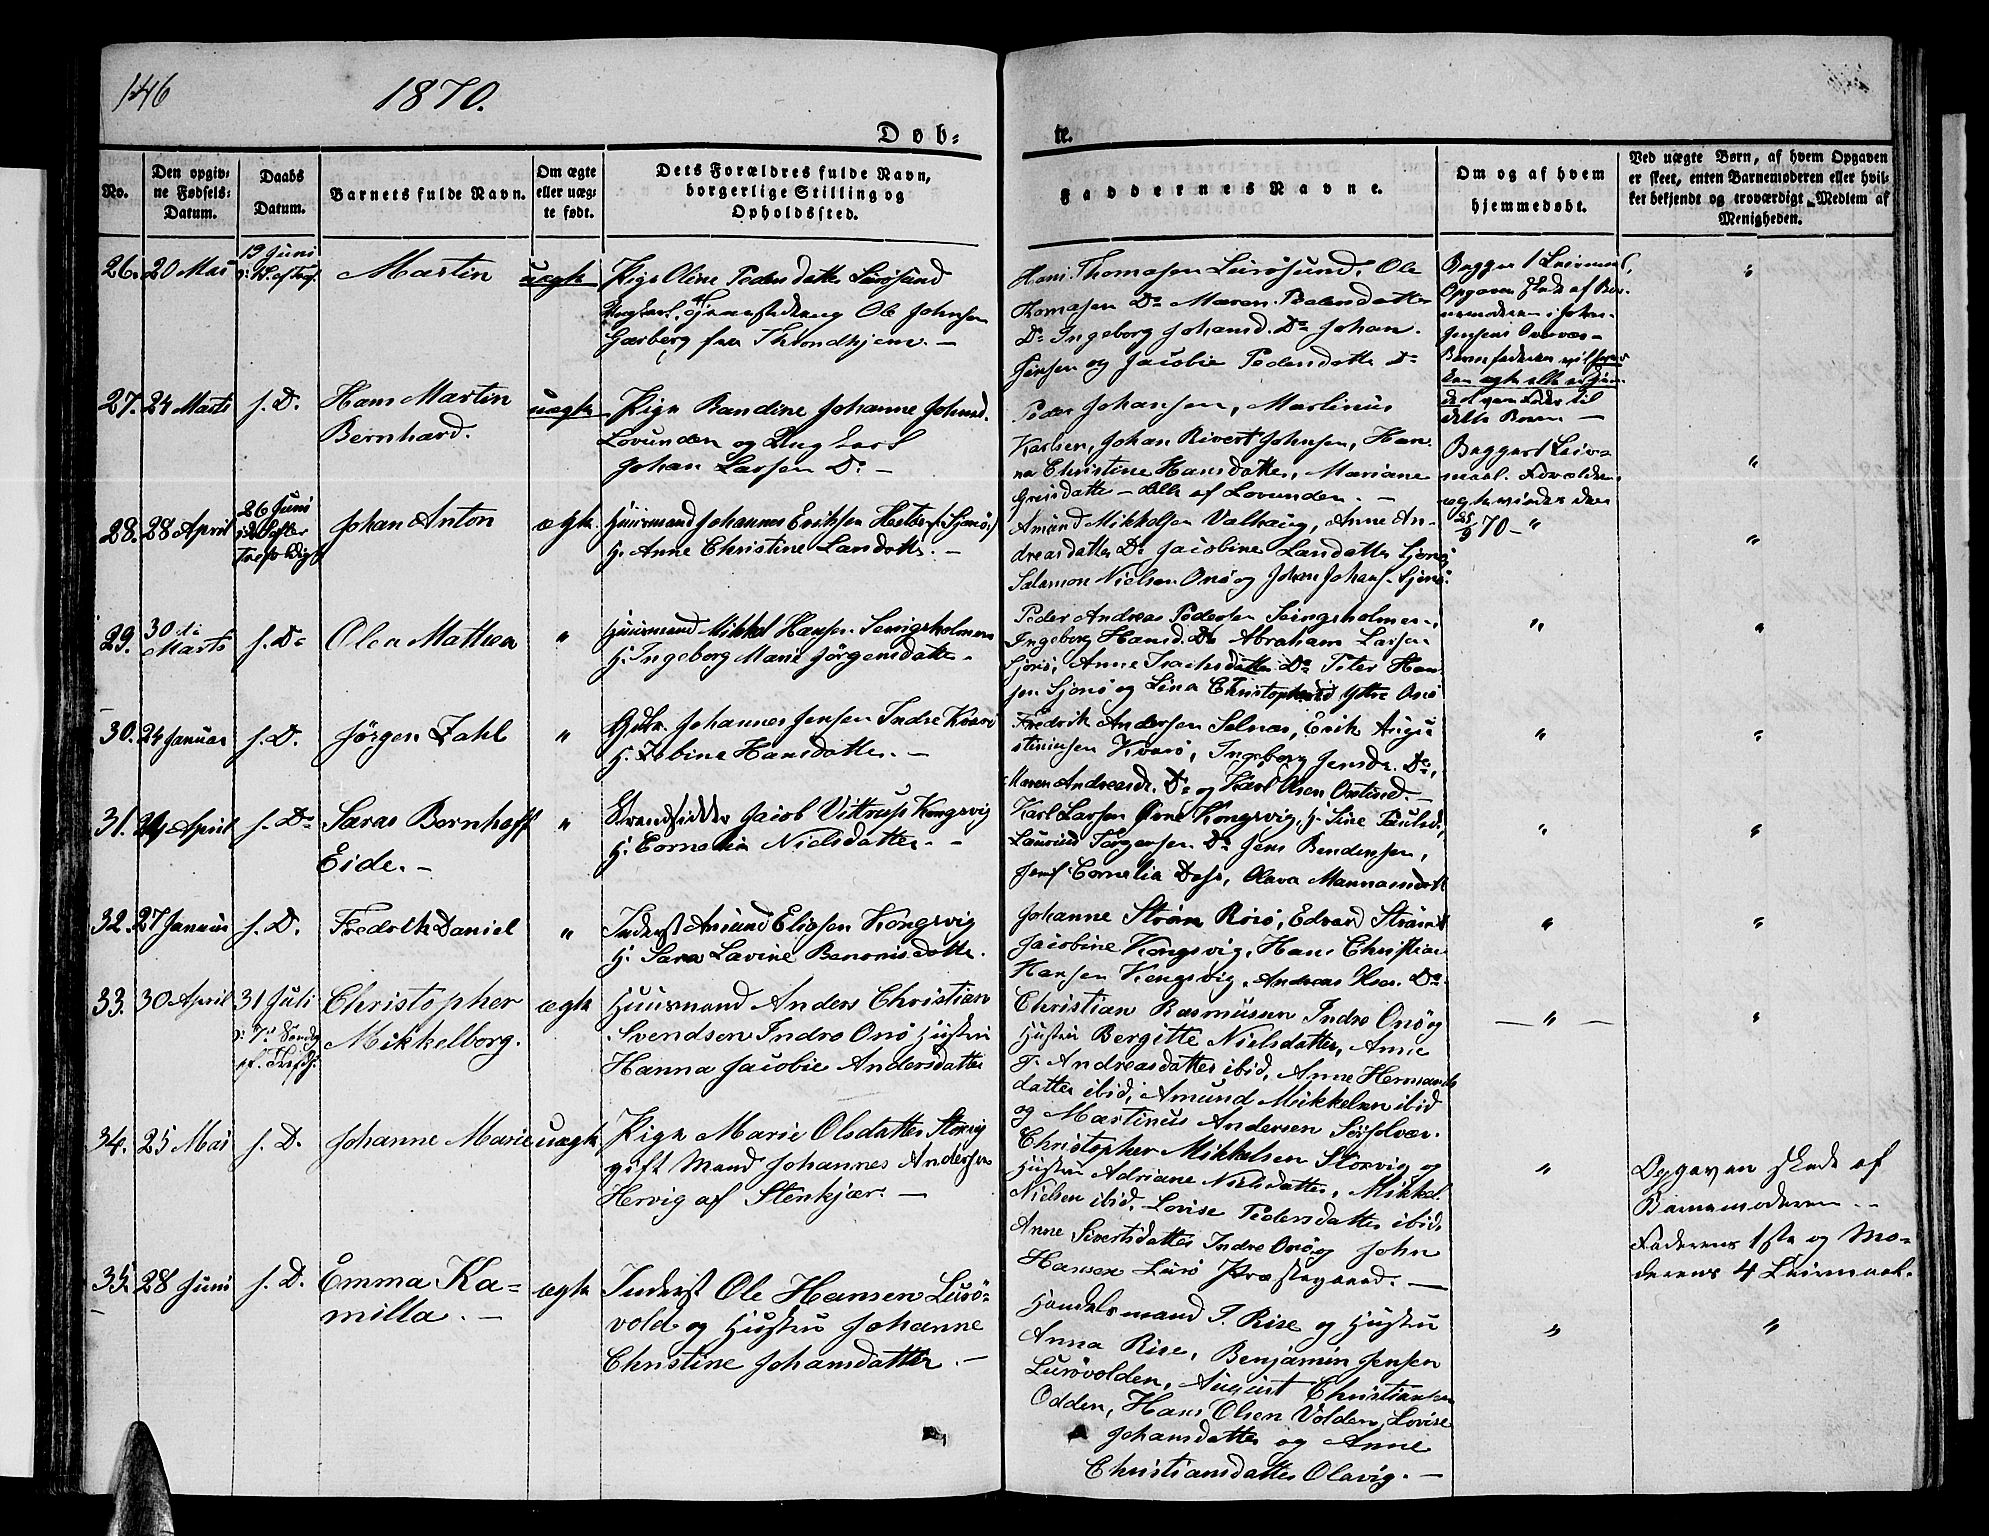 146
1870.
Døb=
te.
No.
Den opgiv=
ne Fødsels=
Datum.
Daabs
Datum.
Barnets fulde Navn.
Om ægte
eller uæg=
te født.
Dets Forældres fulde Navn,
borgerlige Stilling og
Opholdssted.
Faddernes Navne.
Om og af hvem
hjemmedøbt.
Ved uægte Børn, af hvem Opgaven
er skeet, enten Barnemoderen eller hvil=
ket bekjendt og troværdigt Medlem af
Menigheden.
26. 20 Mai
19 Juni
Martin
uægte
Pige Oline Pedersdatter Lurøsund
Ole Johnsen
Garberg fra Throndhjem. —
Hans Thomasen Lurøsund, Ole
Thomasen Do Maren Pedersdatter
Do Ingeborg Johansd. Do Johan
Jensen og Jacobie Pedersdatter Do
Begges 1 Leiermaal,
Opgaven skede af Bar-
nemoderen i Johan
Jensens Overvær-
Barnefaderen vil
"
27. 24 Marts
s. D.
Hans Martin
Bernhard.
uægte
Pige Bandine Johanne Johnsd.
Lovunden og Ungkarl
Johan Larsen Do —
Peder Johansen, Martinus
Karlsen, Johan Rivert Johnsen, Han-
na Christine Hansdatter, Mariane
Greisdatter — Alle af Lovunden. —
Begges 1 Leier-
maal. Forældrene
25/9 70 —
"
28. 28 April
26 Juni
Johan Anton
ægte.
Huusmand Johannes Eriksen
H. Anne Christine Larsdatter. —
Amund Mikkelsen Valhaug, Anne An-
dreasdatter Do Jacobine Larsdatter Sjonø
Salamon Nielsen Onø og Johan Johans. Sjonø.
"
"
29. 30 te
Marts
s. Do
Olea Mathea
"
Huusmand Mikkel Hansen Seingsholmen
H. Ingeborg Marie Jørgensdatter —
Peder Andreas Pedersen Seingsholmen,
Ingeborg Hansd. Do Abraham Larsen
Sjonø, Anne Isachsdatter Do Peter Han-
sen Sjonø og Lina Christophersd Ytre Onø
"
"
30. 24 Januar
s. D.
Jørgen Zahl
"
Johannes Jensen Indre Kvarø
H. Zebine Hansdatter. —
Fredrik Andersen Selnæs, Erik Augu
stinusen Kvarø, Ingeborg Jensdr. Do,
Maren Andreasd. Do og Karl Olsen Onlund.
"
"
31. 24 April
s. Do
Saras Bernhoff
Eide. —
"
Strandsidder Jacob Vittrup Kongsvig
H. Cornelia Nielsdatter. —
Karl Larsen Kongsvig, H. Sine Paulsd.,
Laurind Torgersen Do Jens Bendensen,
Jomf. Cornelia Dass, Olava
"
"
32. 27 Januar
s. D.
Fredrik Daniel
"
Inderst Amund Eliasen Kongsvig
H. Sara Lavine Benonisdatter.
Johanne Strøm Rosø, Edvard Strøm
Jacobine Kongsvig, Hans Christian
Hansen Kongsvig, Andreas Do
"
"
33. 30 April
31 Juli
7de Søndg
Christopher
Mikkelborg.
ægte
Huusmand Anders Christian
Svendsen Indre Onø Hustru
Hanna Jacobie Andersdatter
Christian Rasmussen Indre Onø og
Hustru Bergitte Nielsdatter, Anne
Andreasdatter ibid, Anne Hermands
datter ibid, Amund Mikkelsen ibid
og Martinus Andersen Sørsolvær.
— " —
"
34. 25 Mai
s. D.
Johanne Marie
uægte
Pige Marie Olsdatter Storvig
gift Mand Johannes Andersen
Hervig af Stenkjær. —
Christopher Mikkelsen Storvig og
Hustru Adriane Nielsdatter, Mikkel
Nielsen ibid. Lovise Pedersdatter ibid,
Anne Sivertsdatter Indre Onø og John
Hansen Lurø Præstegaard. —
"
Opgaven skede af
Barnemoderen. -
Faderens 1ste og Mo-
derens 4 Leiermaal.
35. 28 Juni
s. D.
Emma Ka-
milla. —
ægte
Inderst Ole Hansen Lurø-
vold og Hustru Johanne
Christine Johansdatter. —
Handelsmand P. Rise og Hustru
Anna Rise, Benjamin Jensen
Lurøvolden, August Christiansen
Odden, Hans Olsen Volden, Lovise
Johansdatter og Anne
Christiansdatter Olavig. —
"
"